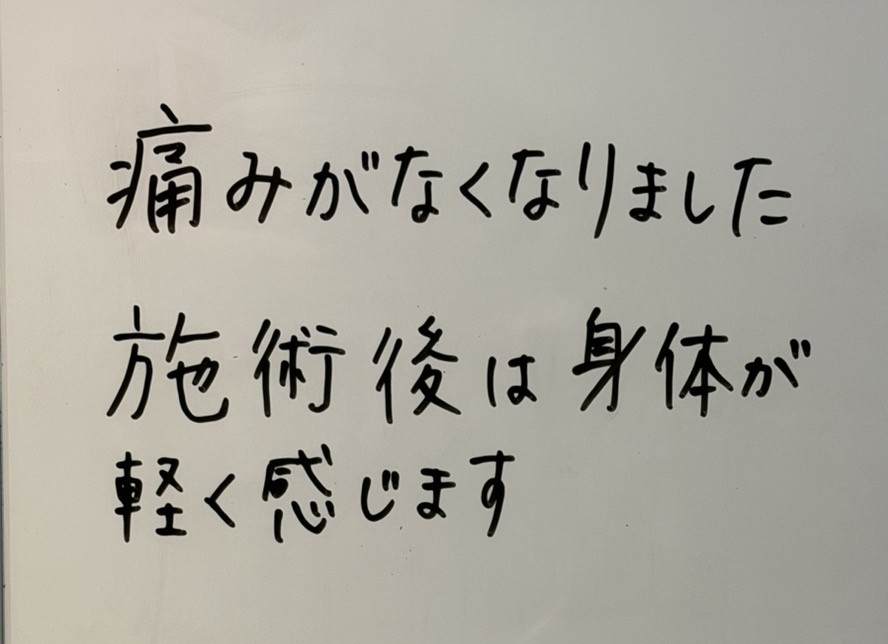 痛みがなくなりました
施術後は身体が
軽く感じます